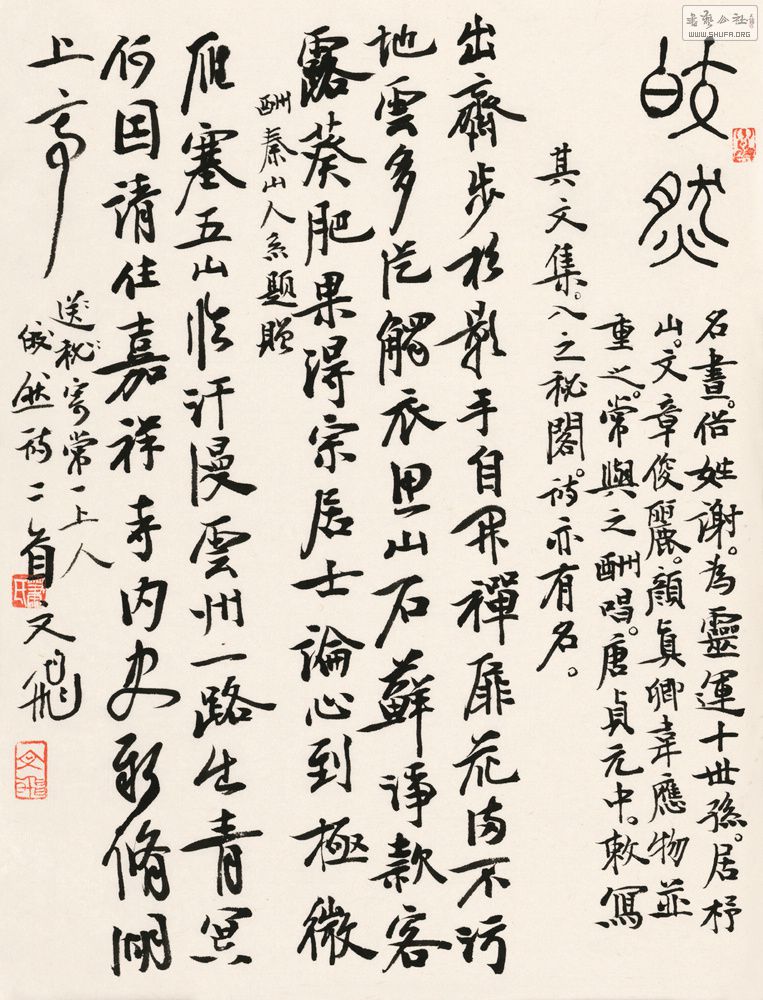 皎然
名晝。俗姓謝。為靈運十世孫。居杼
山。文章俊麗。顏真卿韋應物並
重之。常與之酬唱。唐貞元中。敕寫
其文集。入之秘閣。詩亦有名。
出齋步杉影手自開禪扉花滿不污
地雲多從觸衣思山石蘚淨款客
露葵肥果得宗居士論心到極微
酬秦山人系題贈
雁塞五山臨汗漫雲州一路出青冥
何因請住嘉祥寺內史新脩湖
上亭
送秘寄常一上人
皎然詩二首文飛
書藝公社
WWW.SHUFA.ORG